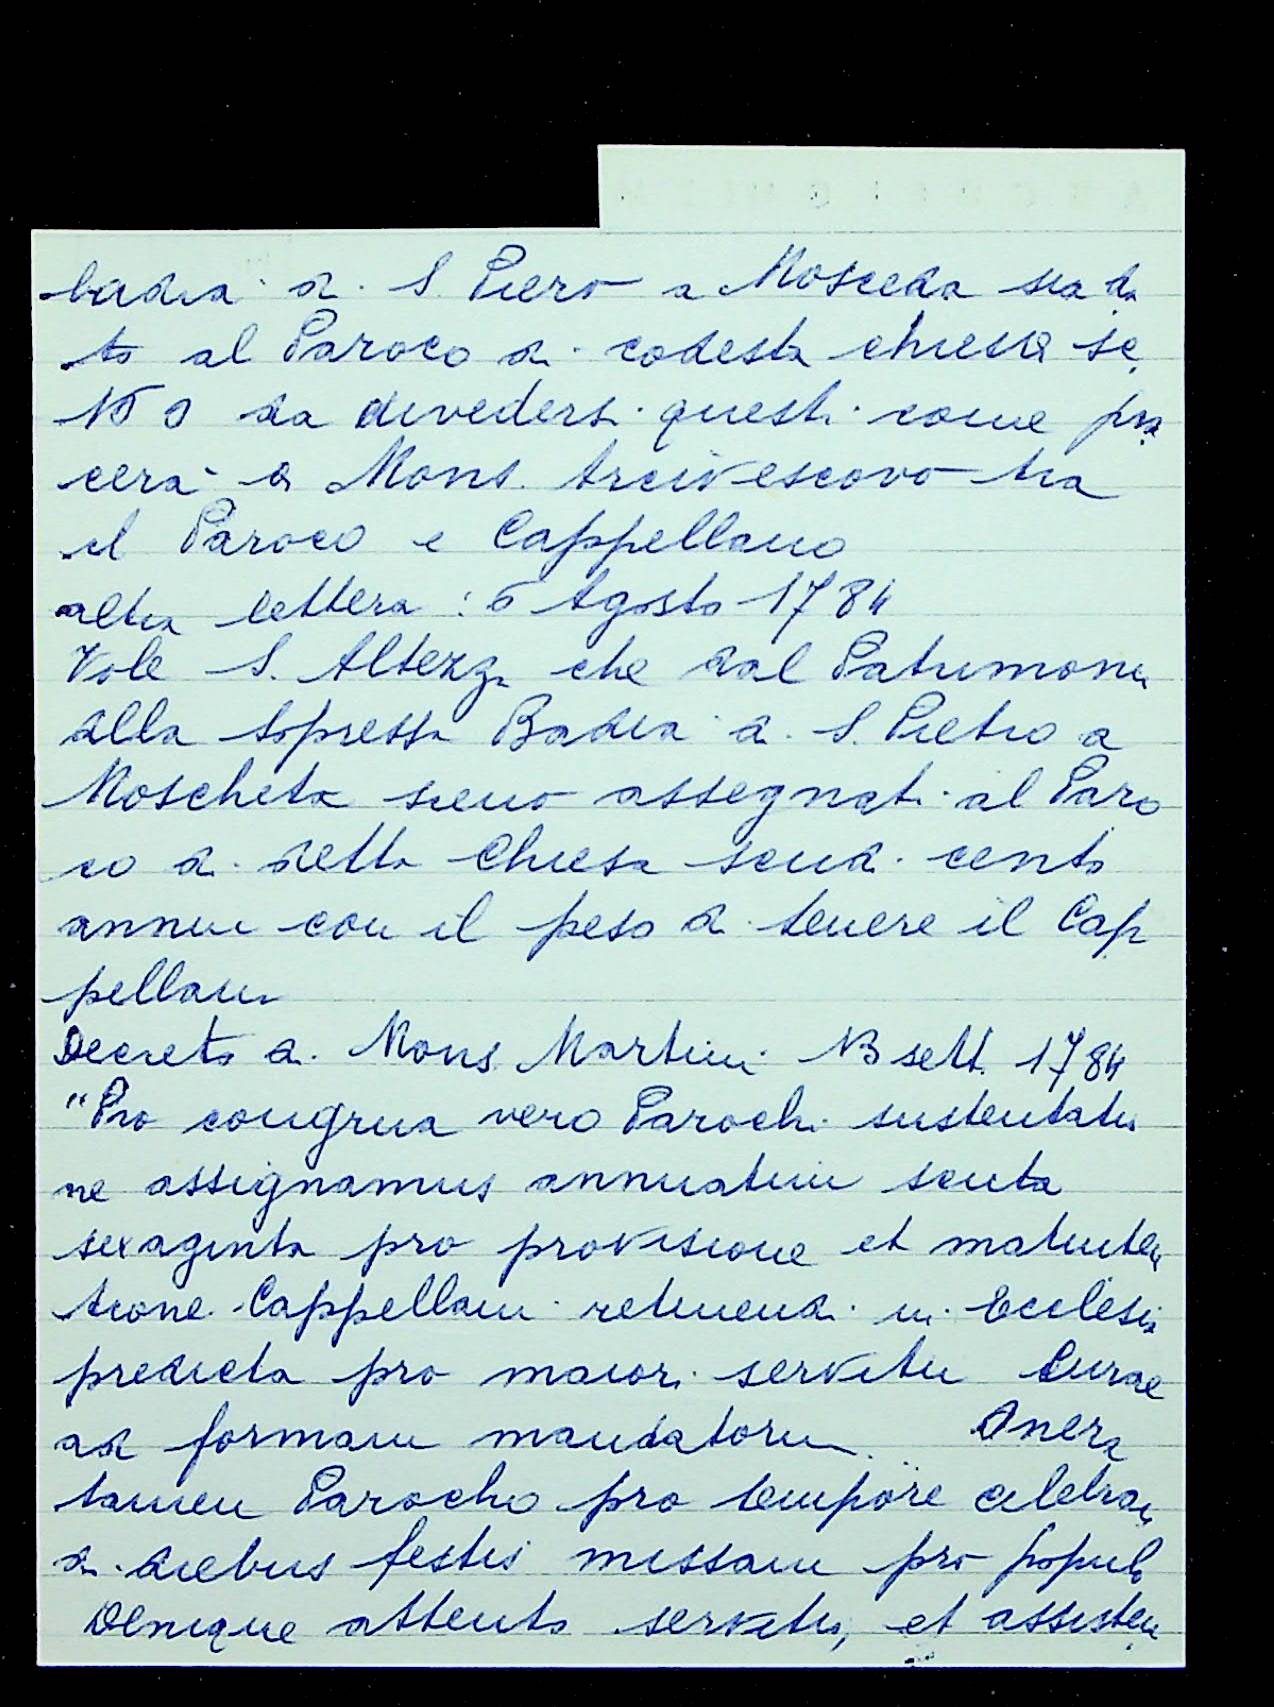 badia di S. Piero a Mosceda sia da
to al Paroco di codesta chiesa sc.
150 da dividersi questi come pia
cerà a Mons. Arcivescovo tra
il Paroco e Cappellano
altra lettera : 6 Agosto 1784
Vole S. Altezza che dal Patrimonio
della sopressa Badia di S. Pietro a
Moscheta sieno assegnati al Paro
co di detta Chiesa scudi cento
annui con il peso di tenere il Cap
pellano
Decreto di Mons. Martini 13 sett. 1784
"Pro congrua vero Parochi sustentatio
ne assignamus annuatim scuta
sexaginta pro provisione et manuten
tione Cappellani retinendi in Ecclesia
predicta pro maiori servitu Curae
ad formam mandatorum Onera
tamen Parocho pro tempore celebran
di diebus festis missam pro populo
Denique attento servitio, et assisten